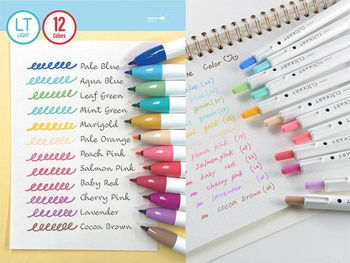 LT
LIGHT
12
Colors
Pale Blue
Aqua Blue
Leaf Green
Mint Green
Marigold
Pale Orange
Peach Pink
Salmon Pink
Baby Red
Cherry Pink
Lavender
Cocoa Brown
Color
blue
blue
green
green
gold
peach pink
salmon pink
baby red
cherry pink
lavender
cocoa brown
CLiCKART
CLiCKART
CLiCKART
CLiCKART